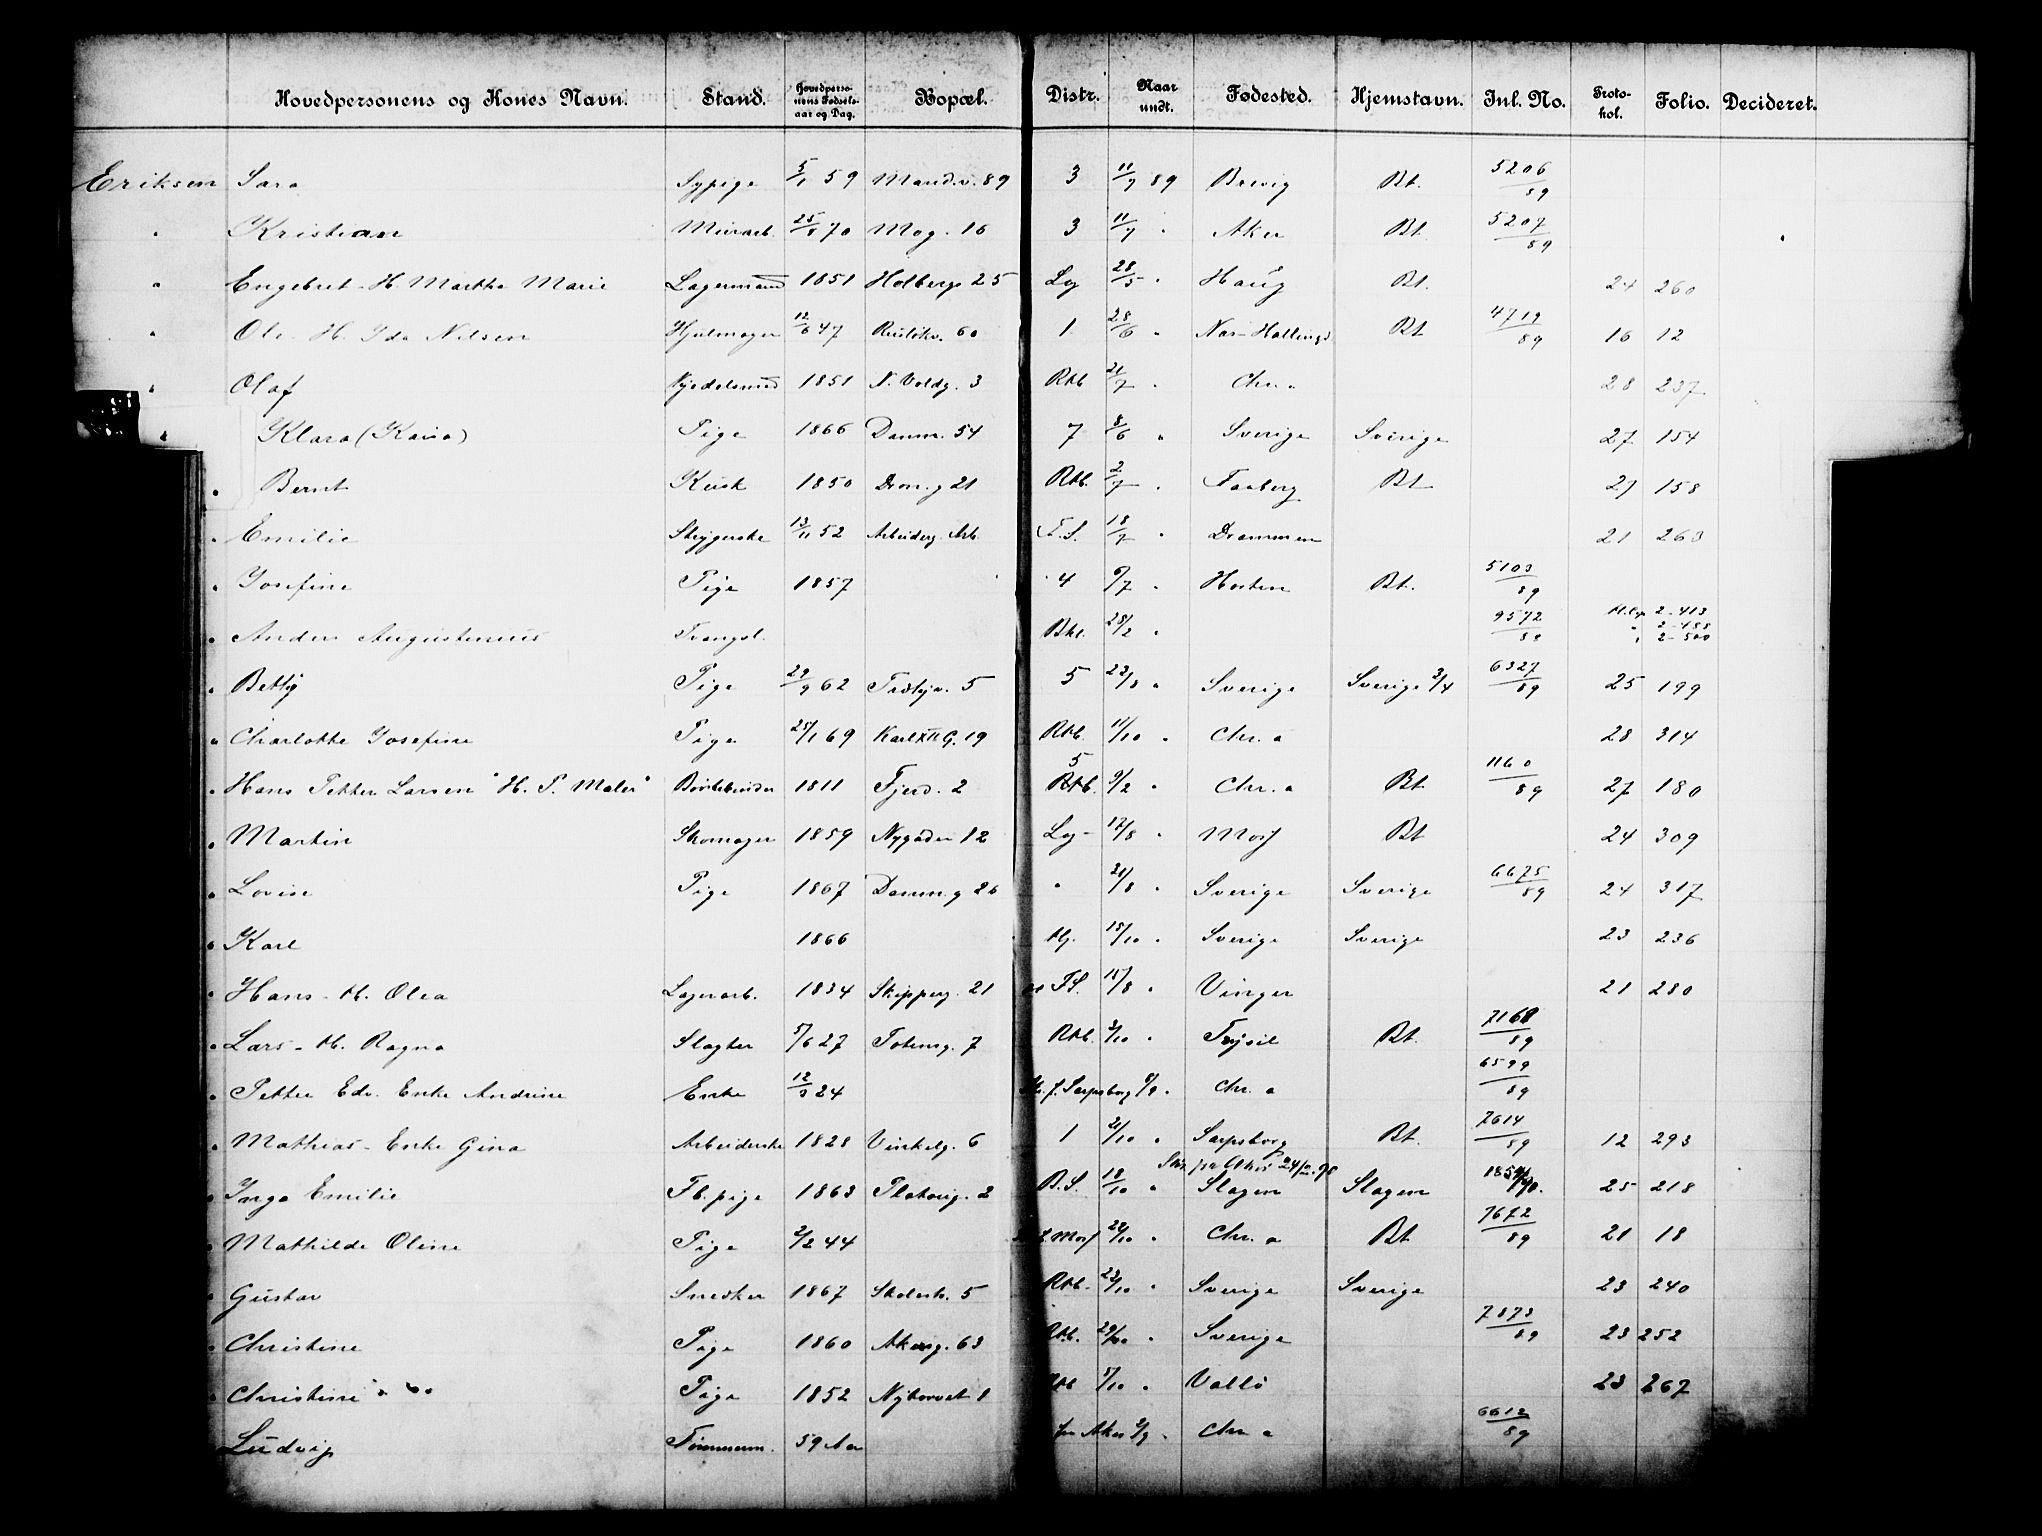 Hovedpersonens og Kones Navn. Stand. Hovedpersonens Fødselsaar og Dag. Bopæl. Distr. Naar undt. Fødested. Hjemstavn. Jnl. No. Protokol. Folio. Decideret.
Eriksen Sara Sypige 5/1 59 Mand.v. 89 3 11/7 89 Brevig Bt. 5206/89
" Kristian Murarb. 70 Mog. 16 3 11/7 " Aker Bt. 5207/89
" Engebret - H. Marthe Marie Lagermand 1851 Holbergs 25 Lg 28/5 " Haug Bt. 24 260
" Ole. H. Ida Nilsen Hjulmager 12/6 47 Ruseløkv. 60 1 28/6 " Næs-Hallingd Bt 4719/89 16 12
" Olaf 1851 N. Voldg. 3 Rtb 21/7 " Chr. a 28 237
" Klara (Kaisa) Pige 1866 Danm. 54 7 8/6 " Sverige Sverige 27 154
" Bernt Kusk 1850 Dron.g 21 Rtb. 2/7 " Faaberg Bt 27 158
" Emilie Strygerske 13/11 52 Arbeiderg. Arb. F.S. 18/7 " Drammen 21 263
" Josefine Pige 1857 4 Horten Bt. 5103/89
" Anders Augustinius Tvangsl. 28/2 " 9572/88 2-413
" 2-488
" 2-500
" Betty Pige 29/9 62 5 22/8 " Sverige Sverige 3/4 6327/89 25 199
" Charlotte Josefine Pige 25/1 69 Karl XII G. 19 Rtb. 11/10 " Chr. a 28 314
" Hans Petter Larsen "H. P. Maler" Børstebinder 1811 Fjerd. 2 5 Rtb. 9/2 " Chr. a Bt. 1160/89 27 180
" Martin Skomager 1859 Nygaden 12 Lg- 12/8 " Moss Bt 24 309
" Lovise Pige 1867 Danm.g 26 " 21/8 " Sverige Sverige 6675/89 24 317
" Karl 1866 15/10 " Sverige Sverige 23 236
" Hans - H. Olea Lagerarb. 1834 Skipperg. 21 FS. 15/8 " Vinger 21 280
" Lars - H. Ragna Slagter 5/6 27 Totensg. 7 Rtb. 3/10 " Trysil Bt. 7168/89
" Petter Edv. Enke Andrine Enke 24 f. Sarpsborg " Chr. a 6599/89
" Mathias - Enke Gina Arbeiderske 1828 Vinkelg. 6 1 21/10 " Sarpsborg Bt. 7614/89 12 293
" Inga Emilie Fb.pige 1863 2 B.S. 18/10 " Slagen Slagen 25 218
" Mathilde Oline Pige 2/2 44 f. Moss 22/10 " Chr. a Bt 7672/89 21 18
" Gustav Snedker 1867 Skolest. 5 Rtb. 23/10 " Sverige Sverige 23 240
" Christine Pige 1860 Akersg. 63 Rtb. 29/10 " Sverige 7873/89 23 252
" Christine Pige 1852 Nytorvet 1 Rtb 5/10 " Vallø 23 267
Ludvig Tømmerm. 59 Aar fra Aker 2/9 " Chr. a 6612/89